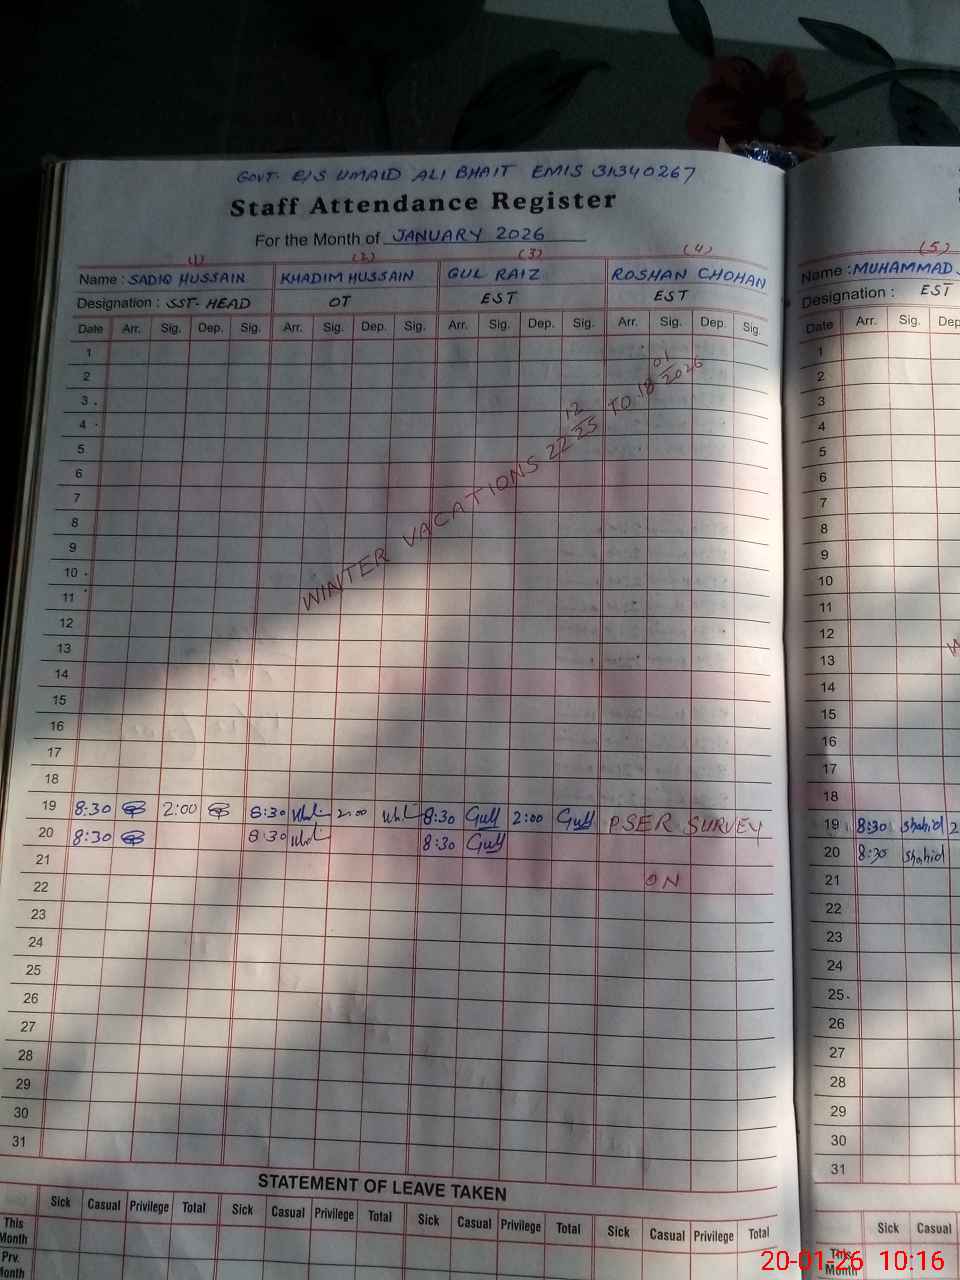 GOVT. E/S UMAID ALI BHAIT EMIS 31340267
Staff Attendance Register
For the Month of JANUARY 2026
(1) (2) (3) (4)
Name : SADIQ HUSSAIN KHADIM HUSSAIN GUL RAIZ ROSHAN CHOHAN
Designation : SST-HEAD OT EST EST
Date Arr. Sig. Dep. Sig. Arr. Sig. Dep. Sig. Arr. Sig. Dep. Sig. Arr. Sig. Dep. Sig.
1
2
3
4
5
6
7
8
9
10
11
12
13
14
15
16
17
18
WINTER VACATIONS 22 12/25 TO 18 01/2026
19 8:30 2:00 8:30 2:00 8:30 Gull 2:00 Gull PSER SURVEY
20 8:30 8:30 8:30 Gull
21
22 ON
23
24
25
26
27
28
29
30
31
STATEMENT OF LEAVE TAKEN
Sick Casual Privilege Total Sick Casual Privilege Total Sick Casual Privilege Total Sick Casual Privilege Total
This Month
Prv. Month
(5)
Name : MUHAMMAD
Designation : EST
Date Arr. Sig. Dep
1
2
3
4
5
6
7
8
9
10
11
12
13
14
15
16
17
18
19 8:30 Shahid 2
20 8:30 Shahid
21
22
23
24
25
26
27
28
29
30
31
Sick Casual
This Month
20-01-26 10:16